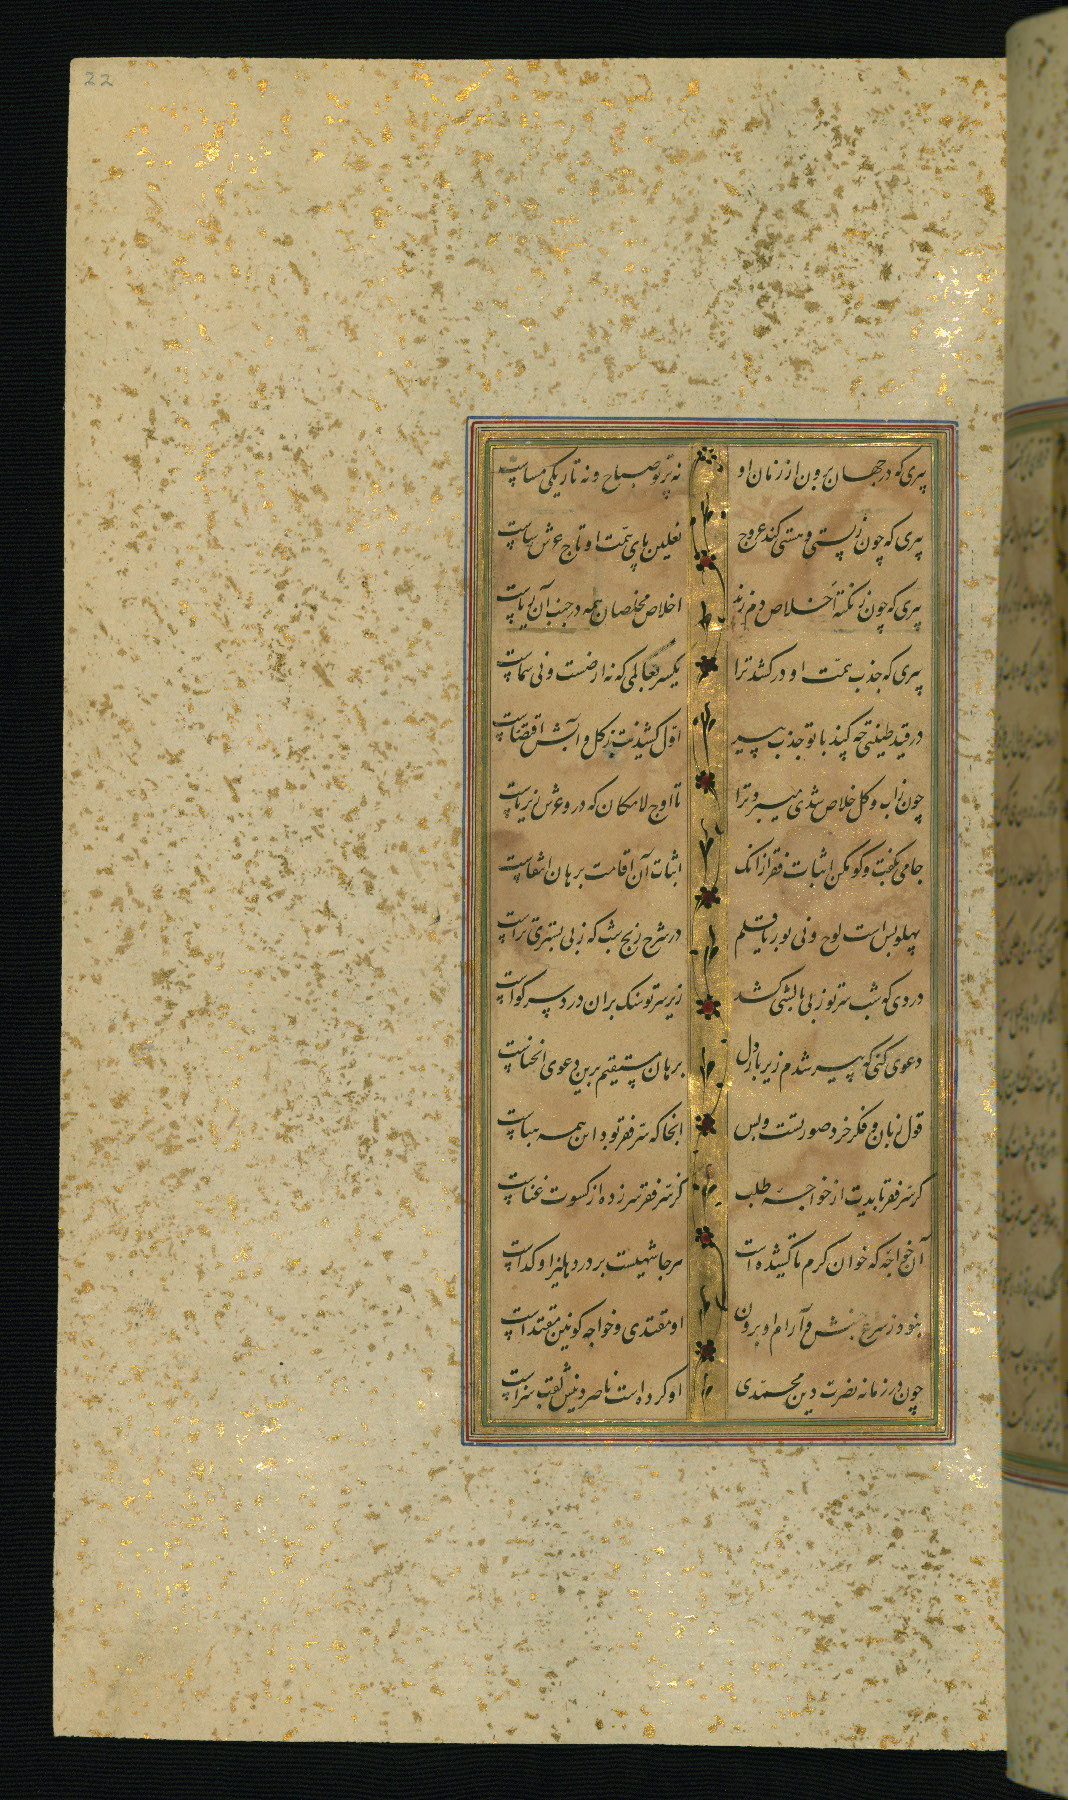 22
پیری که در جهان برون از زمان او نه پرتو صباح و نه تاریکی مساست
پیری که چون ز پستی و هستی کند عروج نعلین پای همت او تاج عرش ساست
پیری که چون ز نکتهٔ اخلاص دم زند اخلاص مخلصان همه در جنب آن ریاست
پیری که جذب همت او در کشد ترا یکسر بعالمی که نه ارضست و نی سماست
در قید طینتی چه کند با تو جذب پیر اول کشیدنت ز گل و آبش اقتضاست
چون ز آب و گل خلاص شدی میبرد ترا تا اوج لامکان که درو عرش زیر پاست
جامی بگفت و گو مکن اثبات فقر از انک اثبات آن اقامت برهان انتفاست
پهلو بس است لوح و نی بوریا قلم در شرح رنج شب که ز بی بستری تراست
دردی که شب سر تو ز بی بالشی کشد زیر سر تو سنک بران درد سر کواست
دعوی کنی که پیر شدم زیر بار دل برهان مستقیم برین دعوی انحناست
قول زبان و فکر خرد صورتست و بس انجا که سر فقر تو بود این همه هباست
گر سر فقر بایدت از خواجه طلب کز سر فقر سر زده از کسوت غناست
آن خواجه که خوان کرم تا کشیده است هر جا شهیست بر در دهلیز او گداست
نبود ز شرع جنبش و آرام او برون او مقتدی و خواجه کونین مقتداست
چون در زمانه نصرت دین محمدی او کرده است ناصر دینش لقب سزاست